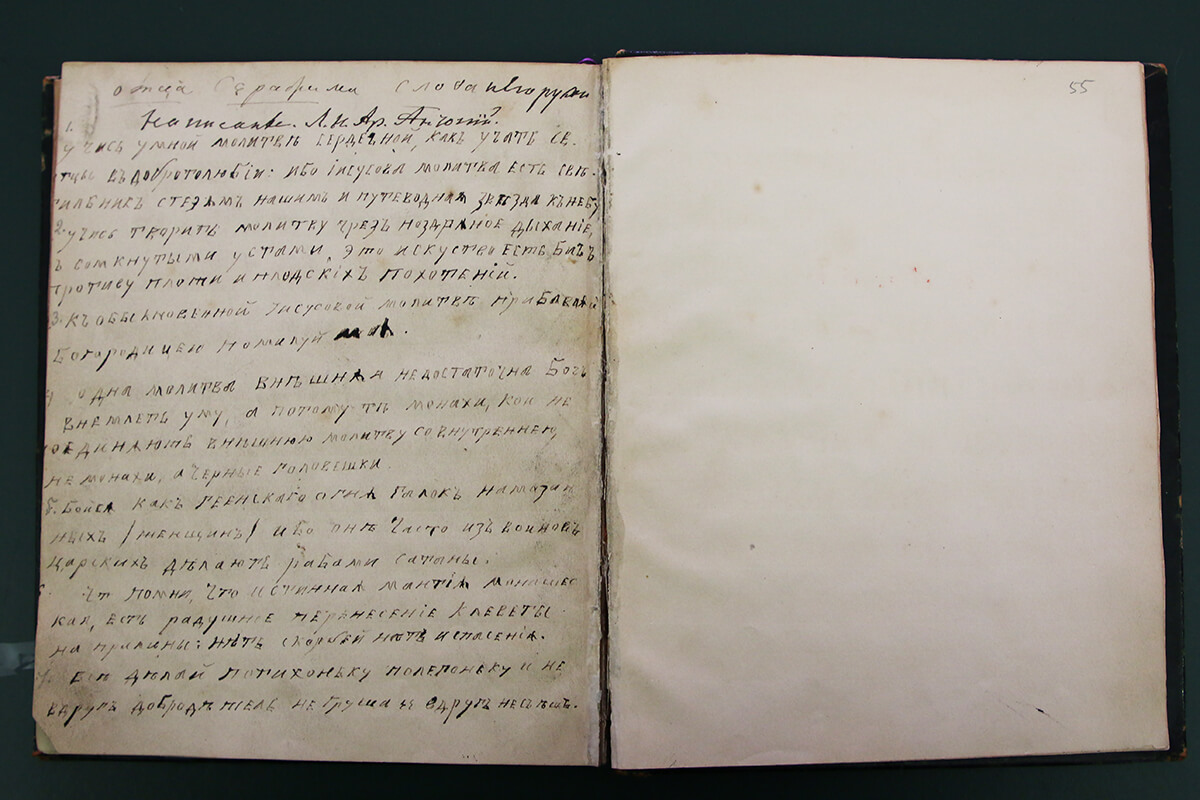 отца Серафима слова его руки
написанѣ. Л. И. Ар. Антоній.
1.
учись умной молитвѣ сердечной, какъ учатъ св.
отцы въ добротолюбіи: ибо іисусова молитва есть свѣ-
тильникъ стезямъ нашимъ и путеводная звѣзда къ небу
2. учись творить молитву чрезъ ноздряное дыханіе,
ъ сомкнутыми устами. Это искуство есть Бичъ
противу плоти и плодскіхъ похотеній.
3. къ обыкновенной іисусовой молитвѣ прибавляй
Богородицею помилуй
4 одна молитва внѣшняя недостаточна Богъ
внемлетъ уму, а потому тѣ монахи, кои не
соединяютъ внѣшнюю молитву совнутреннею,
не монахи, а черные головешки.
5. Бойся какъ геенскаго огня галокъ намазан
ныхъ /женщинъ/ ибо онѣ часто изъ воиновъ
Царскихъ дѣлаютъ рабами сатаны.
помни, что истинная мантія монашес
кая, есть радушное перенесеніе клеветы
на праваны: нѣтъ скорбей нѣтъ испасенія.
Все дѣлай потихоньку полегоньку и не
вдругъ добродѣтель не груша ее вдругъ несъѣшь.
55